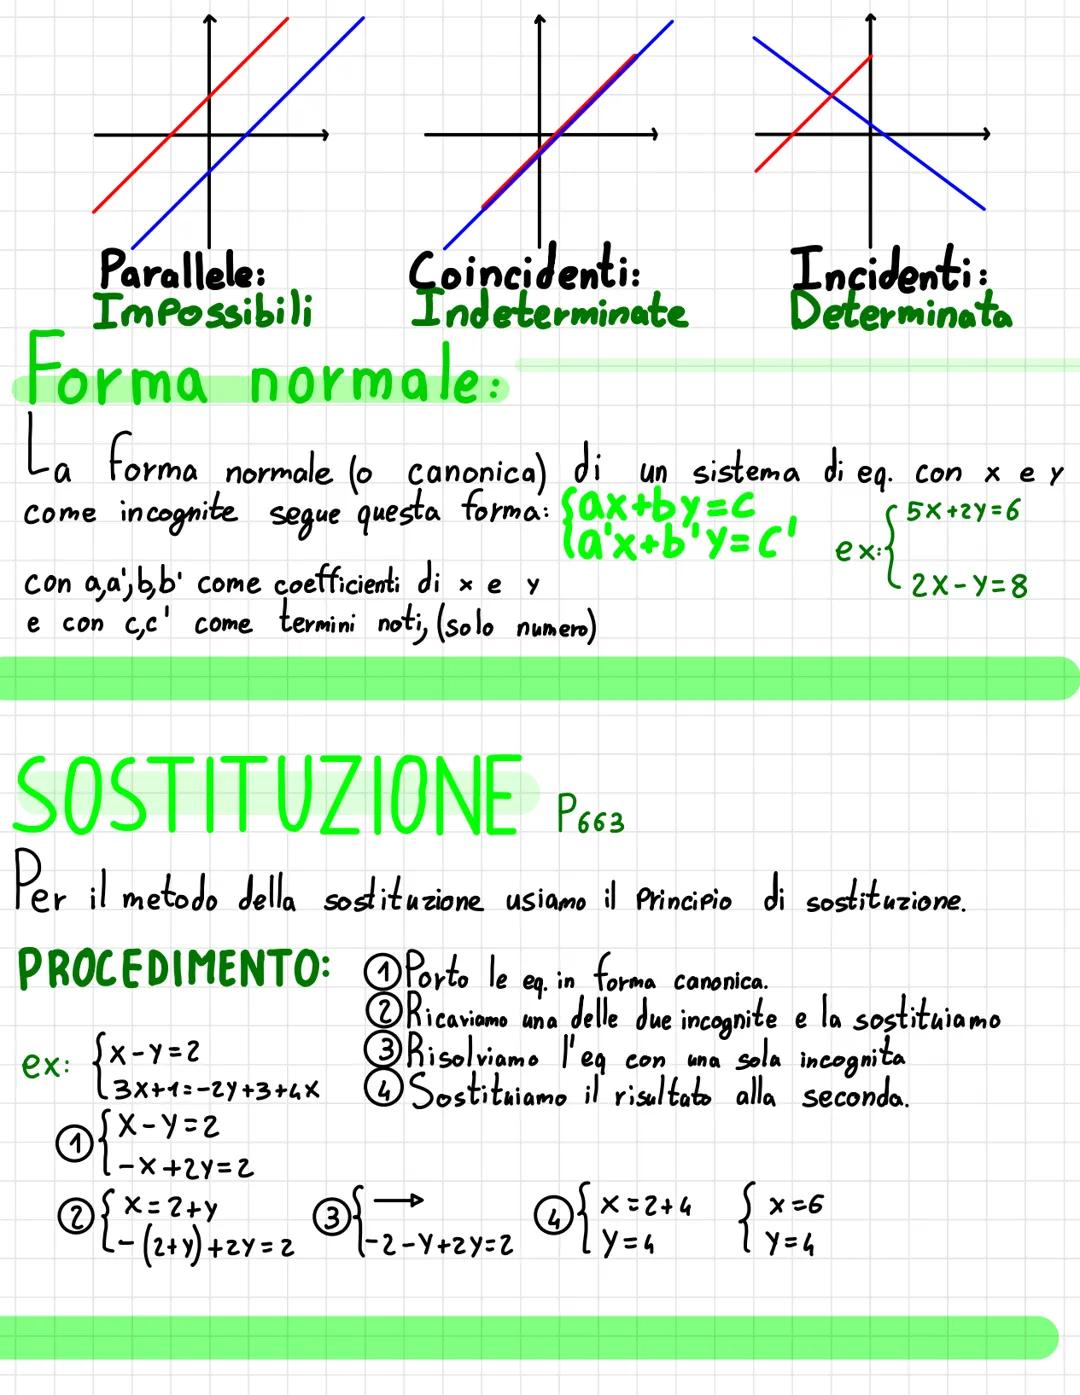 Parallele: Coincidenti: Incidenti:
Impossibili Indeterminate Determinata
Forma normale:
La forma normale (o canonica) di un sistema di eq. con x e y
come incognite segue questa forma: {ax+by=c
{a'x+b'y=c'
ex: { 5x+2y=6
2x-y=8
con a,a',b,b' come coefficienti di x e y
e con c,c' come termini noti, (solo numero)
SOSTITUZIONE P663
Per il metodo della sostituzione usiamo il Principio di sostituzione.
PROCEDIMENTO: ① Porto le eq. in forma canonica.
② Ricaviamo una delle due incognite e la sostituiamo
③ Risolviamo l'eq con una sola incognita
④ Sostituiamo il risultato alla seconda.
ex: { x-y=2
3x+1=-2y+3+4x
① { x-y=2
-x+2y=2
② { x=2+y
-(2+y)+2y=2
③ { →
-2-y+2y=2
④ { x=2+4
y=4
{ x=6
y=4